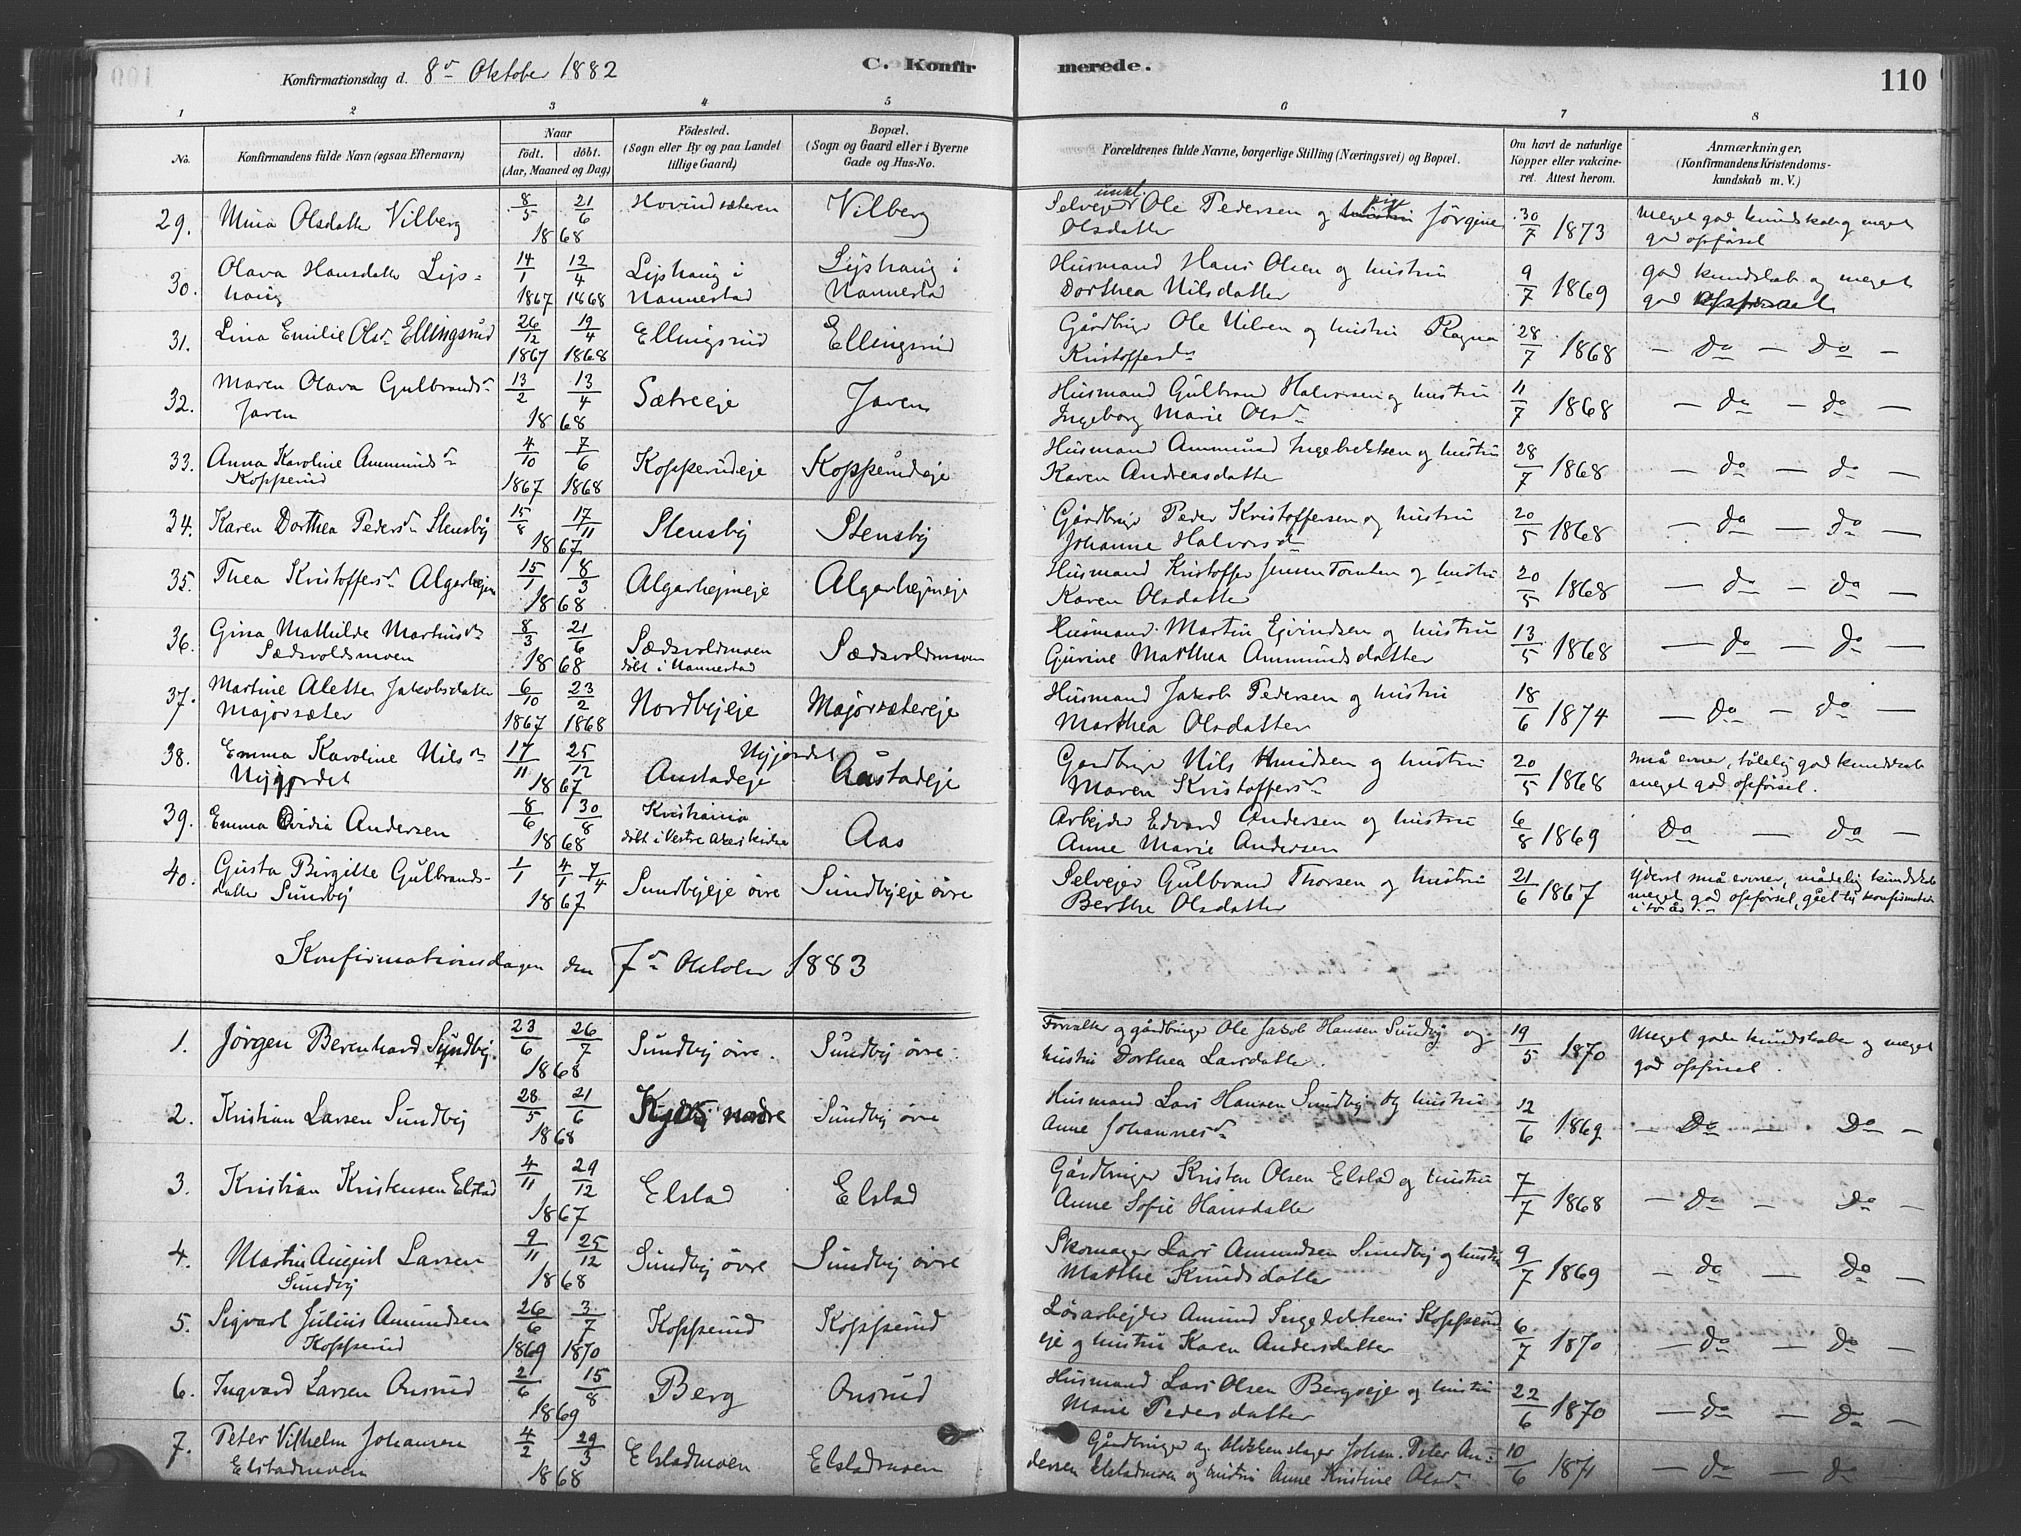 Konfirmationsdag d. 8de Oktober 1882
C. Konfirmerede.
110
1 2 3 4 5 6 7 8
No.
Konfirmandens fulde Navn (ogsaa Efternavn)
Naar
födt. döbt.
(Aar, Maaned og Dag)
Födested.
(Sogn eller By og paa Landet
tillige Gaard)
Bopæl.
(Sogn og Gaard eller i Byerne
Gade og Hus-No.
Forældrenes fulde Navne, borgerlige Stilling (Næringsvei) og Bopæl.
Om havt de naturlige
Kopper eller vakcine-
ret. Attest herom.
Anmærkninger,
(Konfirmandens Kristendoms-
kundskab m. V.)
29. Mina Olsdatter Vilberg 8/5 21/6 1868 Hovindsæteren Vilberg Selvejer unkl. Ole Pedersen og pige Jørgine
Olsdatter 30/7 1873 meget god kundskab og meget
god opførsel
30. Olava Hansdatter Lejs-
haug 14/1 1867 12/4 1868 Lejshaug i
Nannestad Lejshaug i
Nannestad Husmand Hans Olsen og hustru
Dorthea Nilsdatter 9/7 1869 god kundskab og meget
god opførsel
31. Lina Emilie Olsd. Ellingsrud 26/12 1867 19/4 1868 Ellingsrud Ellingsrud Gårdbruger Ole Nilsen og hustru Ragna
Kristoffersd. 28/7 1868 – Do – Do –
32. Maren Olava Gulbrandsd.
Javen 13/2 13/4 1868 Sætreeje Javen Husmand Gulbrand Halvorsen og hustru
Ingeborg Marie Olsd. 11/7 1868 – do – do –
33. Anna Karoline Ammundsd.
Kopperud 4/10 1867 7/6 1868 Kopperudeje Kopperudeje Husmand Ammund Ingebrektsen og hustru
Karen Andreasdatter 28/7 1868 – do – do –
34. Karen Dorthea Pedersd. Stensby 15/8 17/11 1867 Stensby Stensby Gårdbruger Peder Kristoffersen og hustru
Johanne Halvorsd. 20/5 1868 – do – do –
35. Thea Kristoffersd. Algarhejen 15/1 8/3 1868 Algarhejneje Algarhejneje Husmand Kristoffer Jensen Tomten og hustru
Karen Olsdatter 20/5 1868 – do – do –
36. Gina Mathilde Martinsd.
Sædsvoldsmoen 8/3 21/6 1868 Sædsvoldmoen
döbt i Nannestad Sædsvoldmoen Husmand Martin Ejvindsen og hustru
Gurine Matthea Ammundsdatter 13/5 1868 – do – do –
37. Martine Alette Jakobsdatter
Majorsæter 6/10 1867 23/2 1868 Nordbyeje Majorsætereje Husmand Jakob Pedersen og hustru
Marthea Olsdatter 18/6 1874 – do – do –
38. Emma Karoline Nilsd.
Nygjordet 17/11 25/12 1867 Nyjordet
Austadeje Aastadeje Gardbruger Nils Knudsen og hustru
Maren Kristoffersd. 20/5 1868 små evner, tålelig god kundskab
meget god opførsel.
39. Emma Ovidia Andersen 8/6 30/8 1868 Kristiania
döbt i Vestre Akers kirke Aas Arbejder Edvard Andersen og hustru
Anne Marie Andersen 6/8 1869 Do – do –
40. Gusta Birgitte Gulbrands-
datter Sundby 1/1 4/1 7/4 1867 Sundbyeje øvre Sundbyeje øvre Selvejer Gulbrand Thorsen og hustru
Berthe Olsdatter 21/6 1867 yderst små evner, mådelig kundskab
meget god opførsel, gået til konfirmation
i to år.
Konfirmationsdagen den 7de Oktober 1883
1. Jørgen Berenhard Sundby. 23/6 26/7 1868 Sundby øvre. Sundby øvre. Forvalter og gårdbruger Ole Jakob Hansen Sundby og
hustru Dorthea Larsdatter. 19/5 1870 Meget gode kundskaber og meget
god opførsel.
2. Kristian Larsen Sundby 28/5 21/6 1868 nedre Sundby øvre Husmand Lars Hansen Sundby og hustru
Anne Johannesd. 12/6 1869 – Do – Do –
3. Kristian Kristensen Elstad 4/11 29/12 1867 Elstad Elstad Gårdbruger Kristen Olsen Elstad og hustru
Anne Sofie Hansdatter 7/7 1868 – do Do –
4. Martin August Larsen
Sundby 9/11 25/12 1868 Sundby øvre Sundby øvre Skomager Lars Amundsen Sundby og hustru
Matthe Knudsdatter 9/7 1869 – do – Do –
5. Sigvart Julius Amundsen
Kopperud 26/6 1869 3/7 1870 Kopperud Kopperud Løsarbejder Amund Ingebrektsen Kopperud
eje og hustru Karen Andersdatter 6/7 1870 – do – do –
6. Ingvard Larsen Onsrud 21/6 15/8 1869 Berg Onsrud Husmand Lars Olsen Bergseje og hustru
Marie Pedersdatter 22/6 1870 – do – do –
7. Peter Vilhelm Johansen
Elstadmoen 4/2 29/3 1868 Elstadmoen Elstadmoen Gårdbruger og blikkenslager Johan Peter An-
dersen Elstadmoen og hustru Anne Kristine Olsd. 10/6 1871 – do – do